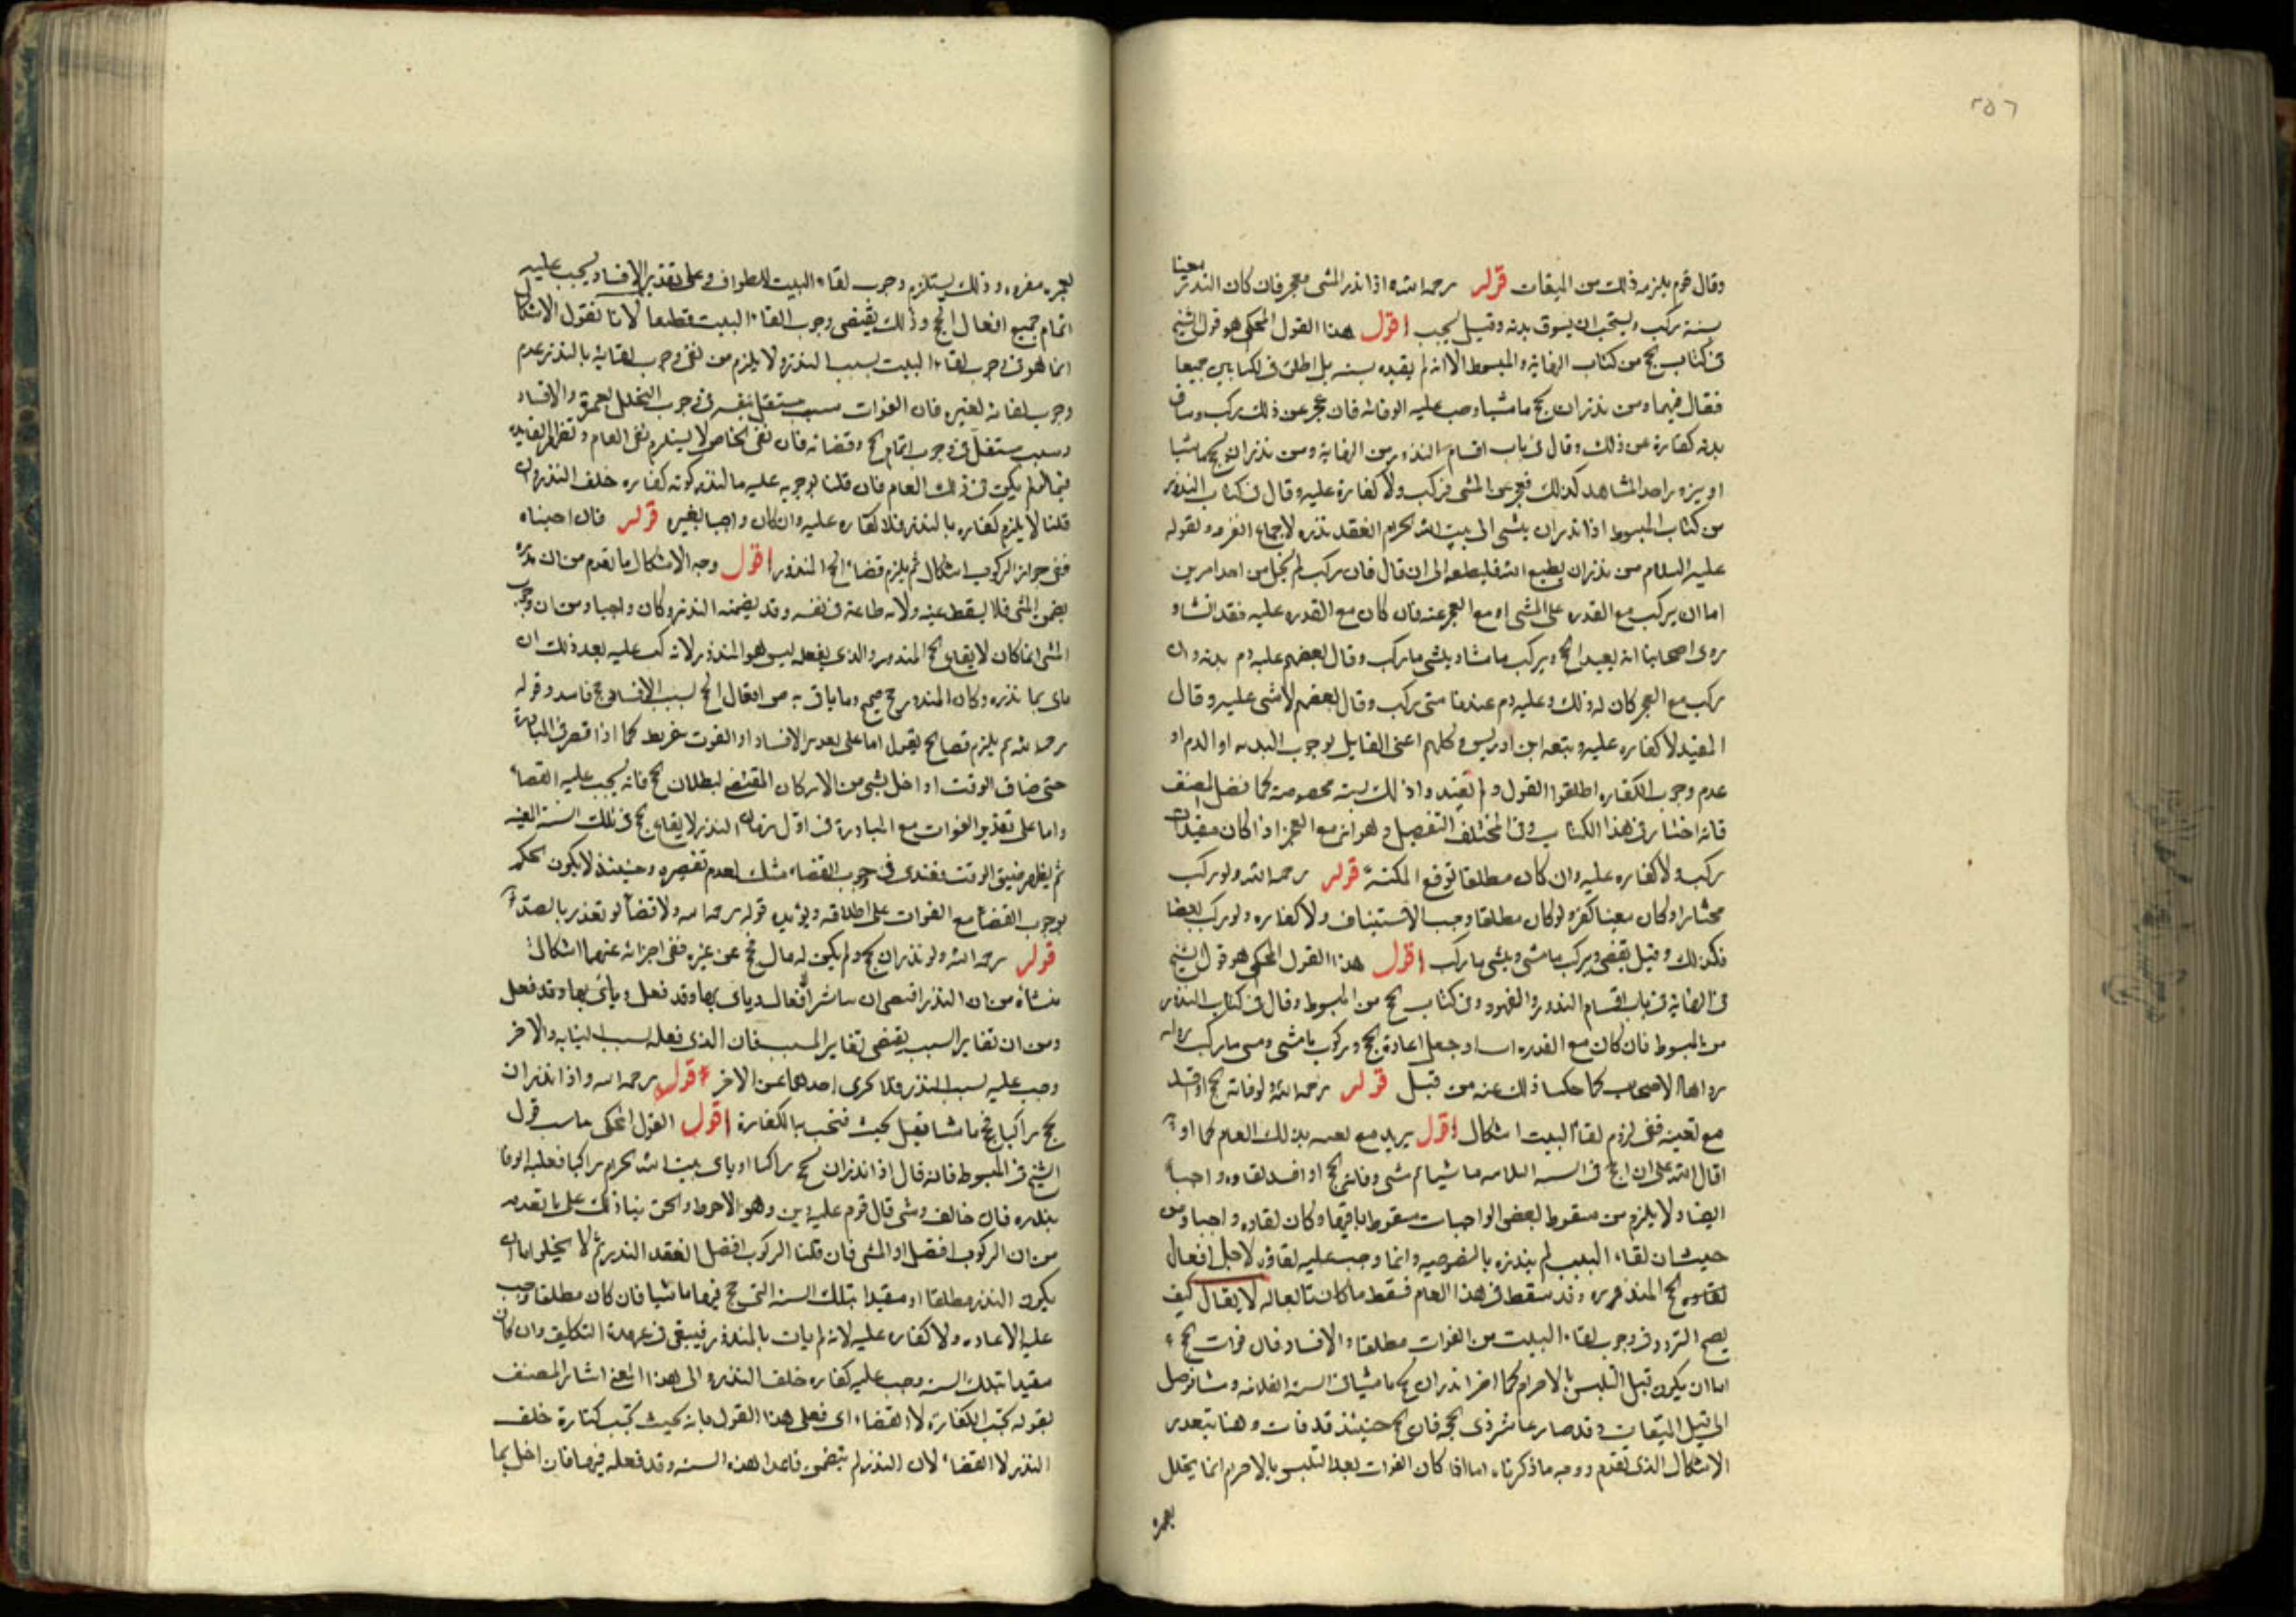 ٢٥٦
وقال قوم يلزمه ذلك من الميقات قوله رحمه الله اذا نذر المشى فعجز فان كان النذر معينا
بسنة ركب ويستحب ان يسوق بدنه وقيل يجب اقول هذا القول المحكى هو قول الشيخ
فى كتاب الحج من كتاب النهاية والمبسوط الا انه لم يقيده بسنه بل اطلق فى الكتابين جميعا
فقال فيهما ومن نذر ان يحج ماشيا وجب عليه الوفا به فان عجز عن ذلك ركب وساق
بدنه كفارة عن ذلك وقال فى باب اقسام النذور من النهاية ومن نذر ان يحج ماشيا
او يزور احد المشاهد كذلك فعجز عن المشى فركب ولا كفارة عليه وقال فى كتاب النذور
من كتاب المبسوط اذا نذر ان يمشى الى بيت الله الحرام انعقد نذره لاجماع الفرقه ولقوله
عليه السلام من نذر ان يطيع الله فليطعه الى ان قال فان ركب لم يخل من احد امرين
اما ان يركب مع القدره على المشى او مع العجز عنه فان كان مع القدره عليه فقد انشاء
روى اصحابنا انه يعيد الحج ويركب ما مشا ويمشى ما ركب وقال بعضهم عليه دم بدنه وان
ركب مع العجز كان له ذلك وعليه دم عندنا متى ركب وقال بعضهم لا شى عليه وقال
المفيد لا كفاره عليه وتبعه ابن ادريس وكلهم اعنى القايل بوجوب البدنه او الدم او
عدم وجوب الكفاره اطلقوا القول ولم يقيدوا ذلك بسنه مخصوصة كما فصل المصنف
فانه اختار فى هذا الكتاب وفى المختلف التفصيل وهو انه مع العجز اذا كان مقيدا
ركب ولا كفاره عليه وان كان مطلقا توقع المكنة قوله رحمه الله ولو ركب
مختارا وكان معينا كفر ولو كان مطلقا وجب الاستيناف ولا كفاره ولو ركب بعضا
فكذلك وقيل يقضى ويركب ما مشى ويمشى ما ركب اقول هذا القول المحكى هو قول الشيخ
فى النهاية فى باب اقسام النذور والعهود وفى كتاب الحج من المبسوط وقال فى كتاب النذور
من المبسوط فان كان مع القدره اسا وجعل اعادة الحج وركوب ما مشى ومشى ما ركب روايه
رواها الاصحاب كما حكينا ذلك عنه من قبل قوله رحمه الله ولو فاته الحج او افسد
مع تعينه ففى لزوم لقاء البيت اشكال اقول يريد مع تعينه بذلك العام كما لو
قال لله على ان احج فى السنه الثلاثيه ماشيا ثم مشى وفاته الحج او افسد لقاوه واجبا
ايضا ولا يلزم من سقوط بعض الواجبات سقوط باقيها وكان لقاوه واجبا ومن
حيث ان لقاء البيت لم ينذره بالخصوصيه وانما وجب عليه لقاوه لاجل افعال
لقاوه الحج المنذوره وقد سقط فى هذا العام فسقط ما كان تابعا له لا يقال كيف
يصح التردد فى وجوب لقاء البيت من الفوات مطلقا والافساد فان فوات الحج
اما ان يكون قبل التلبس بالاحرام كما اذا نذر ان يحج ماشيا فى السنه الفلانيه ومشا فوصل
الى قبل الميقات وقد صار عاشر ذى الحجه فان الحج حينئذ قد فات وهنا يتعدى
الاشكال الذى تقدم ووجه ما ذكرناه اما اذا كان الفوات بعد التلبس بالاحرام انما يتحلل
بعمرة
بعمره مفرده وذلك يستلزم وجوب لقاء البيت للطواف وعلى تقدير الافساد يجب عليه
اتمام جميع افعال الحج وذلك يقتضى وجوب القاء البيت قطعا لانا نقول الاشكال
انما هو فى وجوب لقاء البيت بسبب النذر ولا يلزم من نفى وجوب لقايه بالنذر عدم
وجوب لقائه لغيره فان الفوات سبب مستقل بنفسه فى وجوب التحلل بعمرة والافساد
وسبب مستقل فى وجوب اتمام الحج وقضائه فان نفى الخاص لا يستلزم نفى العام وتظهر الفايده
فيما لو لم يكن فى ذلك العام فان قلنا بوجوبه عليه بالنذر كونه كفاره خلف النذر وان
قلنا لا يلزم كفاره بالنذر فلا كفاره عليه وان كان واجبا بغيره قوله فان اوجبناه
ففى جواز الركوب اشكال ثم يلزم قضاء الحج المنذور اقول وجه الاشكال ما تقدم من ان نذره
يضمن المشى فلا يسقط عنه ولانه طاعة فى نفسه وقد يضمنه النذر وكان واجبا ومن ان وجوب
المشى انما كان لايقاع الحج المنذور والذى يفعله ليس هو المنذور لانه يجب عليه بعد ذلك ان
ياتى بما نذره وكان المنذور حج صحيح وما ياتى به من افعال الحج بسبب الافساد حج فاسد وقوله
رحمه الله ثم يلزم قضا الحج يقول اما على تقدير الافساد او الفوت بتفريط كما اذا قصر فى المبادرة
حتى ضاق الوقت او اخل بشى من الاركان المقتضى لبطلان الحج فانه يجب عليه القضاء
واما على تقدير الفوات مع المبادرة فى اول زمان النذر لايقاع الحج فى تلك السنة المعينه
ثم يظهر ضيق الوقت فعندى فى وجوب القضاء شك لعدم تقصيره وحينئذ لا يكون الحكم
بوجوب القضاء مع الفوات على اطلاقه ويؤيده قوله رحمه الله ولا قضاء لو تعذر بالصد
قوله رحمه الله ولو نذر ان يحج ولم يكن له مال فحج عن غيره ففى اجزائه عنهما اشكال
منشأه من ان النذر اقتضى ان يباشر افعال وياتى بها وقد فعل وياتى بها وقد فعل
ومن ان تغاير السبب يقتضى تغاير المسبب فان الذى فعله بسبب النيابه والاخر
وجب عليه بسبب النذر فلا يجزى احدهما عن الاخر قوله رحمه الله واذا نذر ان
يحج راكبا فحج ماشيا فقيل يحنث فتجب بالكفارة اقول القول المحكى مناسب قول
الشيخ فى المبسوط فانه قال اذا نذر ان يحج راكبا او ياتى بيت الله الحرام راكبا فعليه الوفا
بنذره فان خالف ومشى قال قوم عليه دين وهو الاحوط والحق بنا ذلك على ما تقدم
من ان الركوب افضل او المشى فان قلنا الركوب افضل انعقد النذر ثم لا يخلو اما ان
يكون النذر مطلقا او مقيدا بتلك السنة التى حج فيها ماشيا فان كان مطلقا وجب
عليه الاعاده ولا كفاره عليه لانه لم يات بالمنذور فيبقى فى عهدة التكليف وان كان
مقيدا بتلك السنه وجب عليه كفاره خلف النذر والى هذا المعنى اشار المصنف
بقوله تجب الكفارة لا القضاء اى فعلى هذا القول بانه يحنث تجب كفارة خلف
النذر لا القضاء لان النذر لم يتضمن ما عدا هذه السنه وقد فعله فيها فان اخل بما